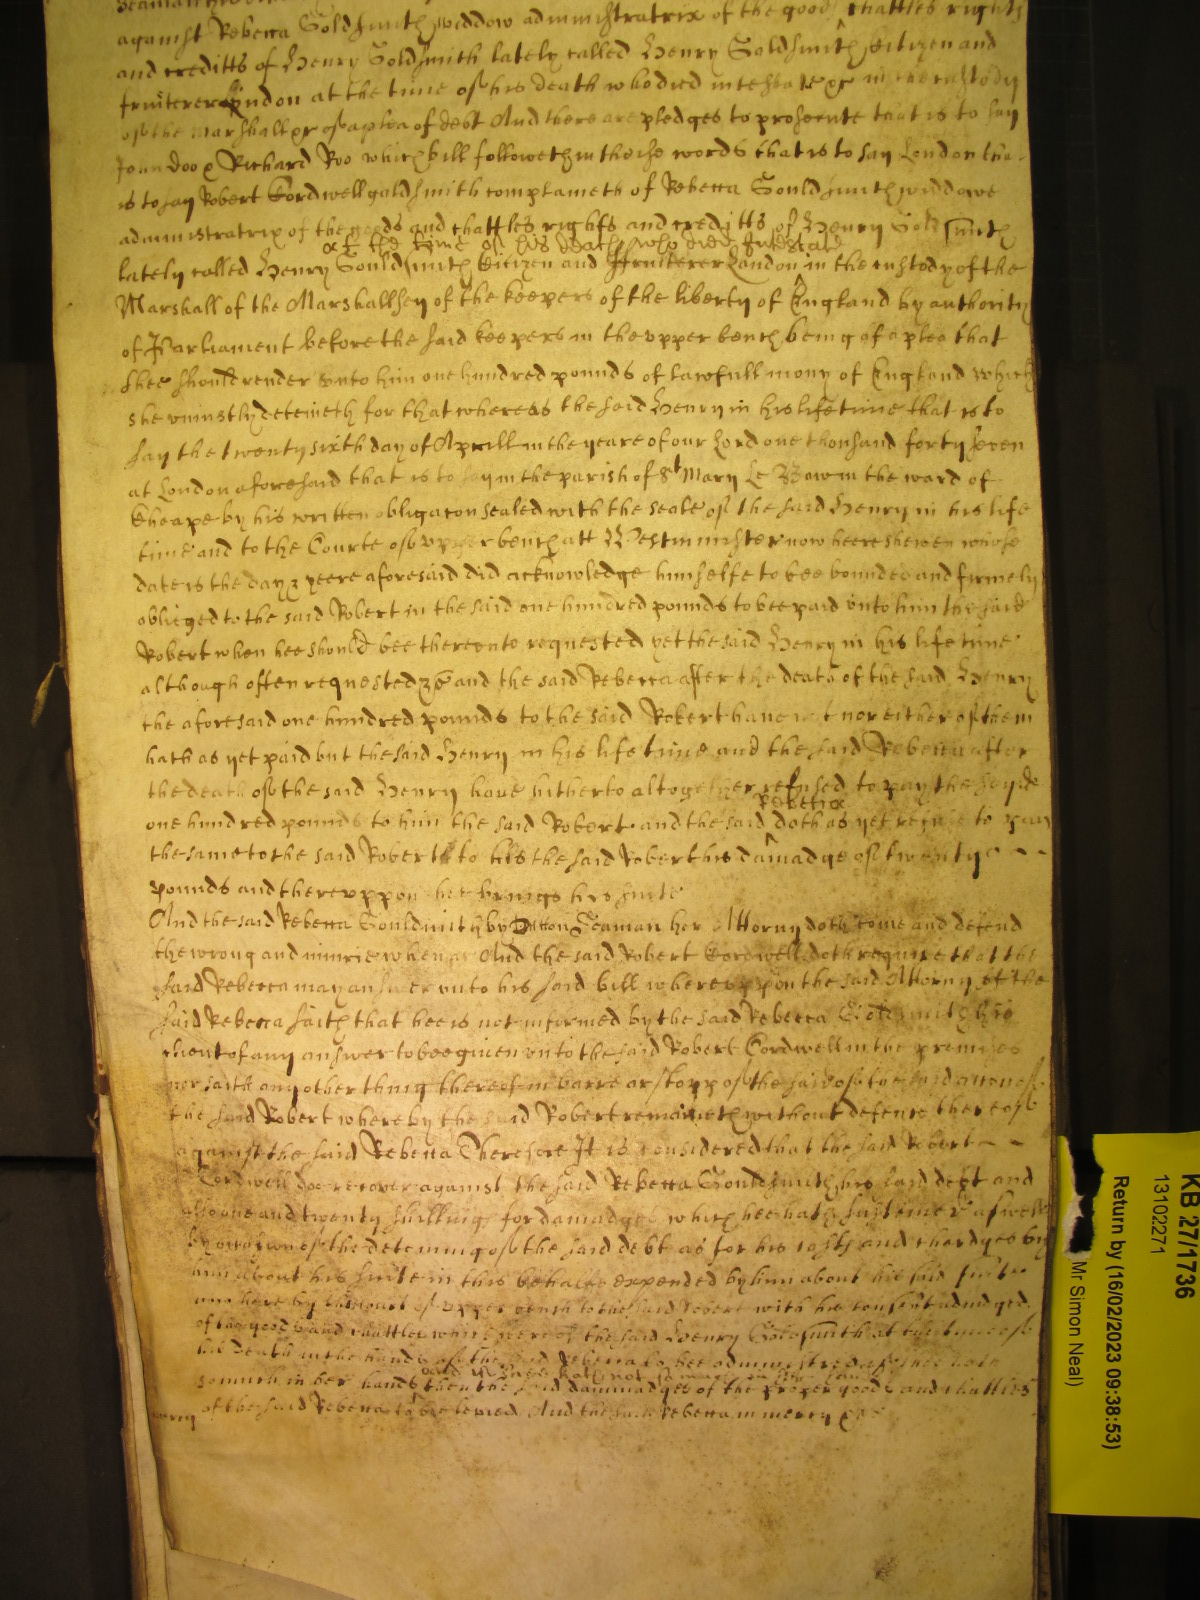 against Rebecca Goldsmith widdow administratrix of the goods chattles rights
and creditts of Henry Goldsmith lately called Henry Goldsmith Citizen and
fruiterer London at the time of his death who died intestate &c in the custody
of the Marshall &c of a plea of debt And there are pledges to prosecute that is to say
John Doo & Richard Roo which bill followeth in theise words that is to say London
is to say Robert Cordwell goldsmith complaineth of Rebecca Gouldsmith widdowe
administratrix of the goods and chattles rights and creditts of Henry Goldsmith
at the time of his death who died Intestate
lately called Henry Gouldsmith Citizen and ffruiterer London in the custody of the
Marshall of the Marshallsey of the keepers of the liberty of England by authority
of Parliament before the said keepers in the upper bench being of a plea that
shee should render unto him one hundred pounds of lawfull mony of England which
she uniustly deteineth for that whereas the said Henry in his life time that is to
say the twenty sixth day of Aprill in the yeare of our Lord one thousand forty seven
at London aforesaid that is to say in the parish of St Mary Le Bow in the ward of
Cheape by his written obligacon sealed with the seale of the said Henry in his life
time and to the Courte of upper bench att Westminister now heere shewen whose
date is the day & yeere aforesaid did acknowledge himselfe to bee bounded and firmely
obliged to the said Robert in the said one hundred pounds to bee paid unto him the said
Robert when hee should bee thereonto requested yet the said Henry in his life time
although often requested &c and the said Rebecca after the death of the said Henry
the aforesaid one hundred pounds to the said Robert haue not nor either of them
hath as yet paid but the said Henry in his life time and the said Rebecca after
the death of the said Henry haue hitherto altogether refused to pay the said
Rebecca
one hundred pounds to him the said Robert and the said doth as yet refuse to pay
the same to the said Robert to his the said Robert his damadge of twenty
pounds and thereuppon hee brings his suite
And the said Rebecca Gouldmith by Dutton Seaman her Attorny doth come and defend
the wrong and iniurie when &c And the said Robert Cordwell doth require that the
said Rebecca may answer unto his said bill whereuppon the said Attorny of the
said Rebecca saith that hee is not informed by the said Rebecca Goldsmith his
client of any answer to bee giuen unto the said Robert Cordwell in the premises
nor saith any other thing thereof in barre or stopp of the said
the said Robert whereby the said Robert remaineth without defence thereof
against the said Rebecca Therefore It is considered that the said Robert
Cordwell doe recover against the said Rebecca Gouldsmith his said debt and
also one and twenty shillings for damadges which hee hath susteined aswell
by occasion of the deteining of the said debt as for his costs and chardges by
him about his suite in this behalfe expended by him about his said suite
here by the Court of upper bench to the said Robert with his consent adiudged
of the goods and chattles which were of the said Henry Goldsmith at the time of
his death in the hands of the said Rebecca to bee administred if shee hath
and if shee hath not so much in
somuch in her hands then the said dammadges of the proper goods and chattles
of the said Rebecca to bee levied And the said Rebecca in mercy &c
mercy
KB 27/1736
13102271
Return by (16/02/2023 09:38:53)
Mr Simon Neal)